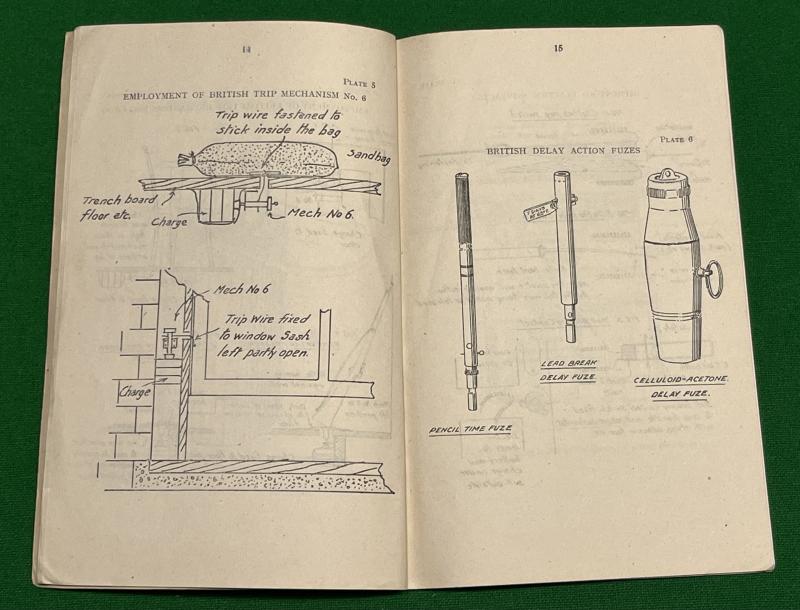 14
PLATE 5
EMPLOYMENT OF BRITISH TRIP MECHANISM No. 6
Trip wire fastened to
stick inside the bag
Sandbag
Trench board
floor etc.
Charge
Mech No 6.
Mech No 6
Trip Wire fixed
to window Sash
left partly open.
Charge
15
PLATE 6
BRITISH DELAY ACTION FUZES
LEAD BREAK
DELAY FUZE
CELLULOID-ACETONE.
DELAY FUZE.
PENCIL TIME FUZE